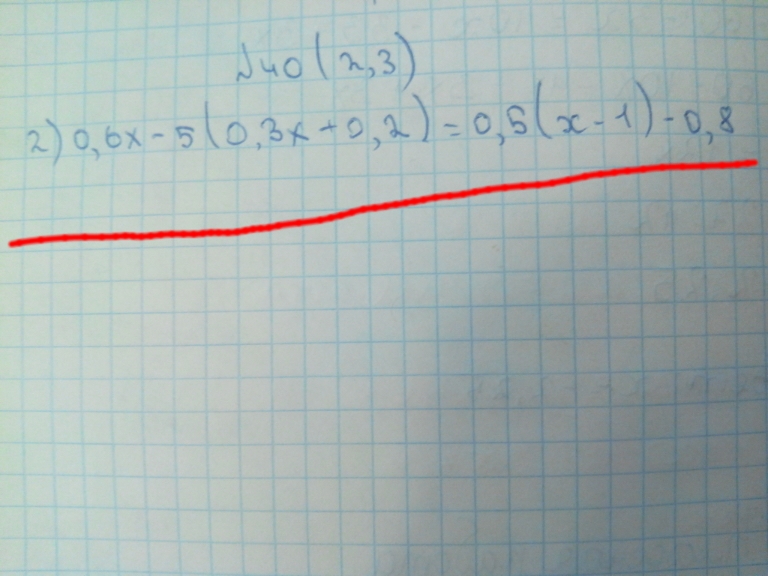 №40(2,3)
2) 0,6x - 5(0,3x + 0,2) = 0,5(x - 1) - 0,8